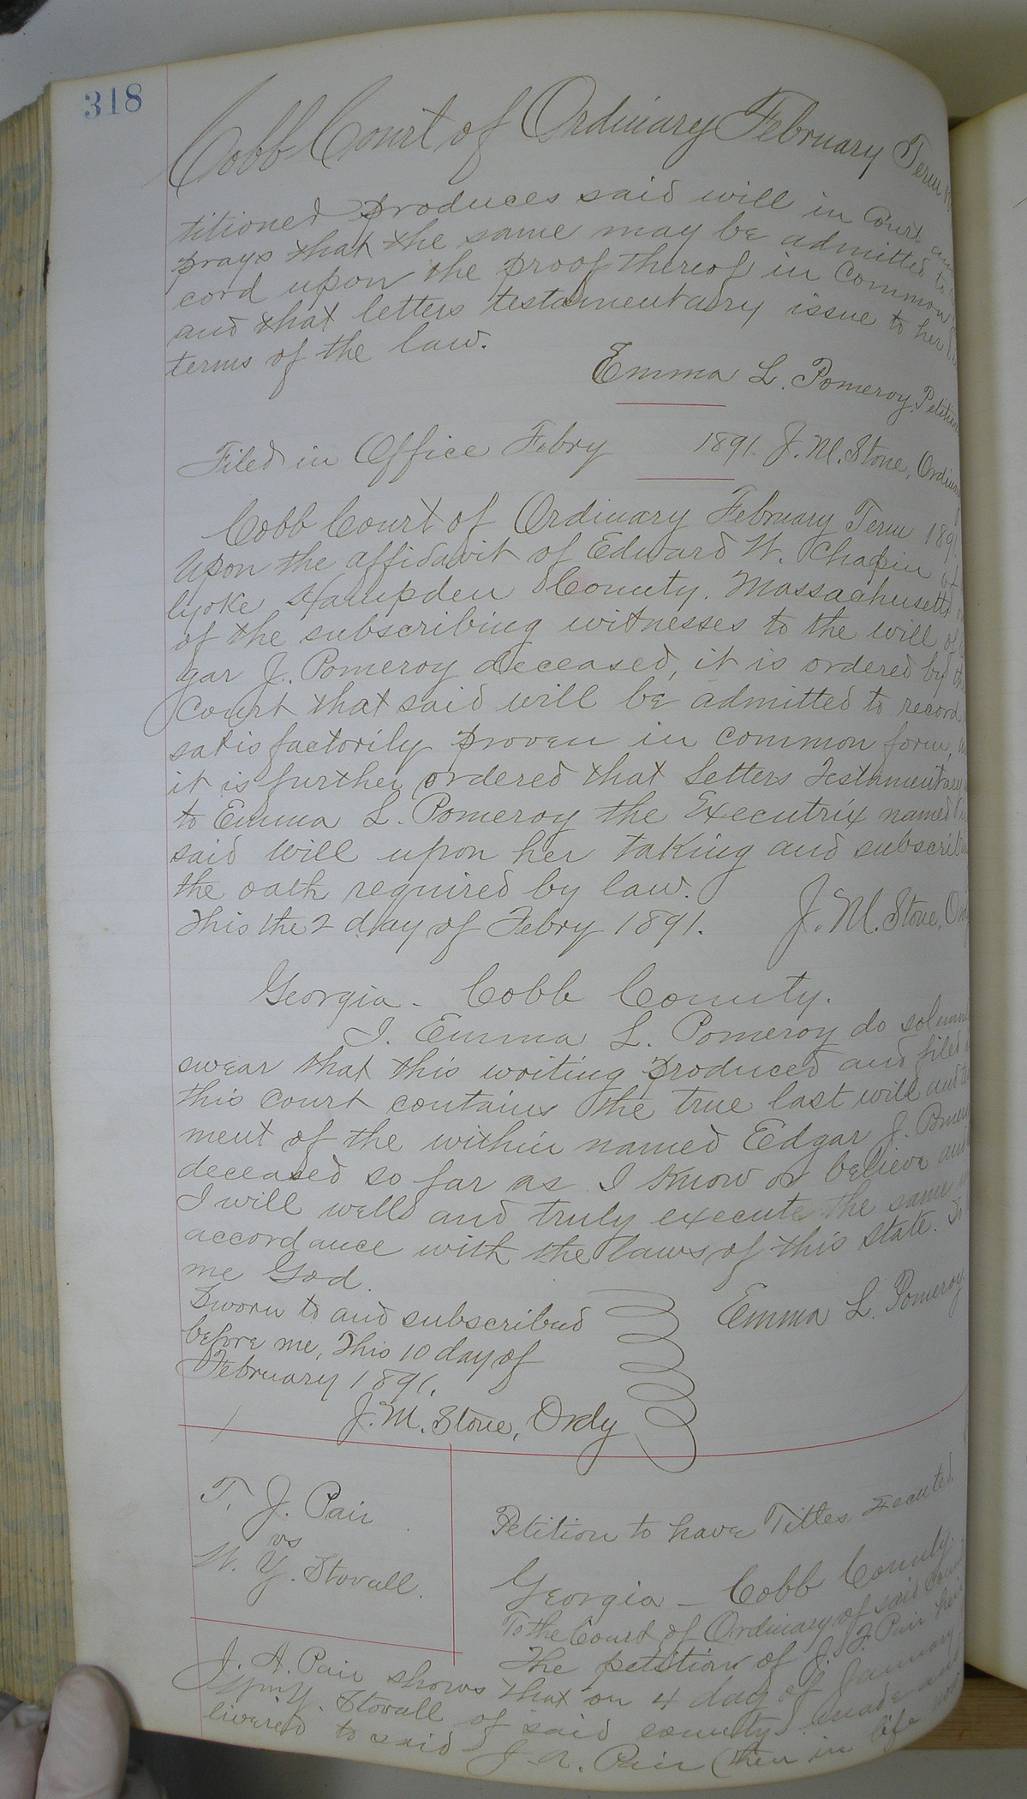 318
Cobb Court of Ordinary February Term
titioned produces said will in Court and
prays that the same may be admitted to
cord upon the proof thereof in Common
and that letters testamentary issue to her
terms of the law.
Emma L. Pomeroy, Petition
Filed in Office Febry 1891. J. M. Stone, Ordin
Cobb Court of Ordinary February Term 189
Upon the affidavit of Edward W. Chapin of
lyoke Hampden County, Massachusetts
of the subscribing witnesses to the will of
gar J. Pomeroy deceased, it is ordered by the
Court that said will be admitted to record
satisfactorily proven in common form,
it is further ordered that Letters Testamentary
to Emma L. Pomeroy the Executrix named
said will upon her taking and subscrib
the oath required by law.
This the 2 day of Febry 1891. J. M. Stone, Ord
Georgia - Cobb County.
I. Emma L. Pomeroy do solemn
swear that this writing produced and filed
this court contains the true last will and
ment of the within named Edgar J. Pome
deceased so far as I know or believe and
I will well and truly execute the same
accordance with the laws of this State. So
me God.
Sworn to and subscribed
before me, This 10 day of
February 1891.
Emma L. Pomeroy
J. M. Stone, Ordy
T. J. Pair
vs
W. Y. Stovall.
Petition to have Titles Executed
Georgia - Cobb County
To the Court of Ordinary of said
The petition of J. Pair
J. A. Pair shows that on 4 day of January
Stovall of said county made and
livered to said J. A. Pair (then in life